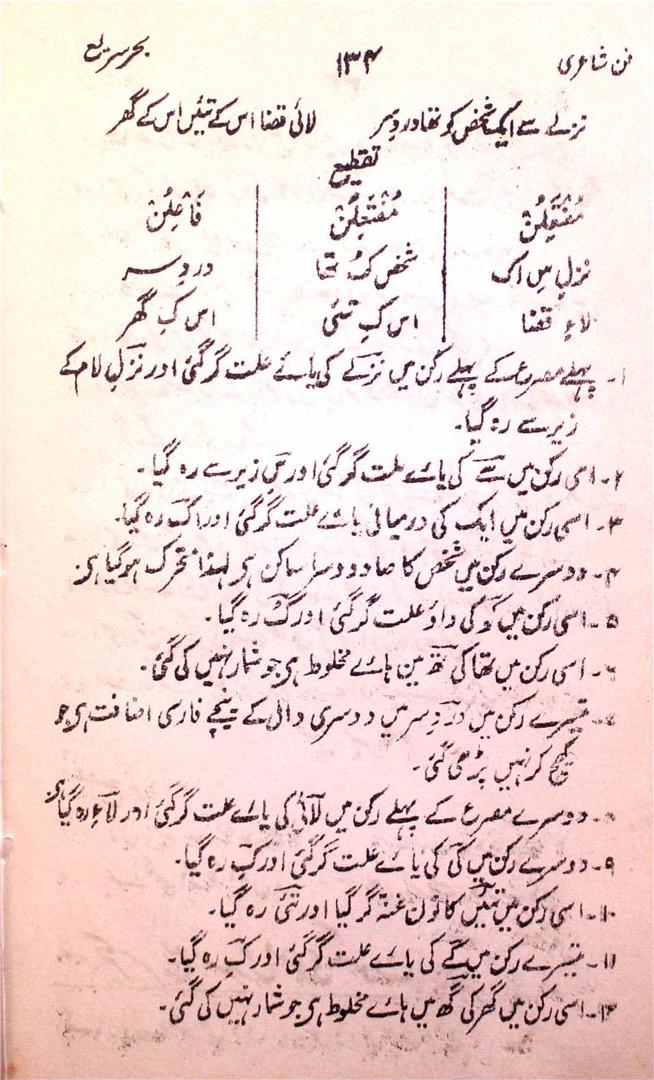 فن شاعری ۱۳۴ بحر سریع
نزلے سے ایک شخص کو تھا درد سر لائی قضا اس کے تئیں اس کے گھر
تقطیع
مُفْتَعِلُنْ مُفْتَعِلُنْ فَاعِلُنْ
نزلِ سِ اک شخص کُ تھا دردِ سر
لاءِ قضا اس کِ تئی اس کِ گھر
۱۔ پہلے مصرع کے پہلے رکن میں نزلے کی یائے علت گر گئی اور نزلِ لام کے
زیر سے رہ گیا۔
۲۔ اسی رکن میں سے کی یائے علت گر گئی اور سِ زیر سے رہ گیا۔
۳۔ اسی رکن میں ایک کی درمیانی یائے علت گر گئی اور اک رہ گیا۔
۴۔ دوسرے رکن میں شخص کا صاد دوسرا ساکن ہی لہذا متحرک ہوگیا ہی۔
۵۔ اسی رکن میں کو کی واؤ علت گر گئی اور کُ رہ گیا۔
۶۔ اسی رکن میں تھا کی تھ مین ہائے مخلوط ہی جو شمار نہیں کی گئی۔
۷۔ تیسرے رکن میں دردِ سر میں دوسری دال کے نیچے فارسی اضافت ہی جو
کھینچ کر نہیں پڑھی گئی۔
۸۔ دوسرے مصرع کے پہلے رکن میں لائی کی یائے علت گر گئی اور لاءِ رہ گیا ہی
۹۔ دوسرے رکن میں کی کی یائے علت گر گئی اور کِ رہ گیا۔
۱۰۔ اسی رکن میں تئیں کا نون غنہ گر گیا اور تئی رہ گیا۔
۱۱۔ تیسرے رکن میں کے کی یائے علت گر گئی اور کِ رہ گیا۔
۱۲۔ اسی رکن میں گھر کی گھ میں ہائے مخلوط ہی جو شمار نہیں کی گئی۔